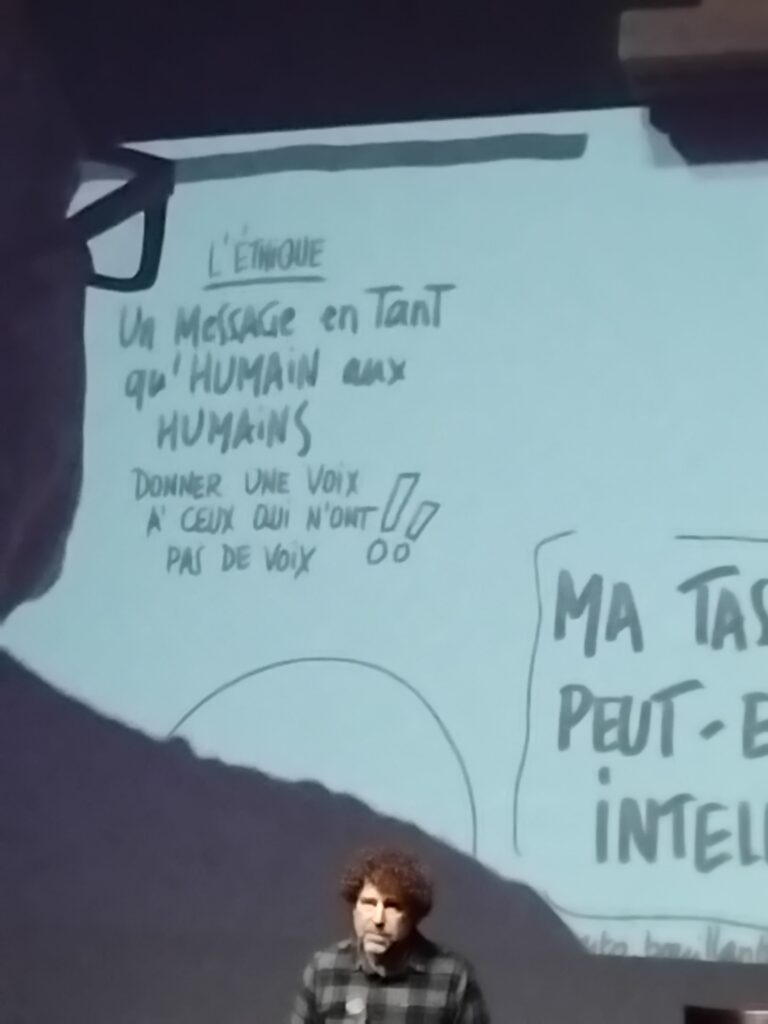 L'ÉTHIQUE
Un MESSAGE en TanT
qu'HUMAiN aux
HUMAiNS
DONNER UNE VOiX
A' CEUX QUI N'ONT !!
PAS DE VOiX
MA TAS
PEUT-E
iNTELL